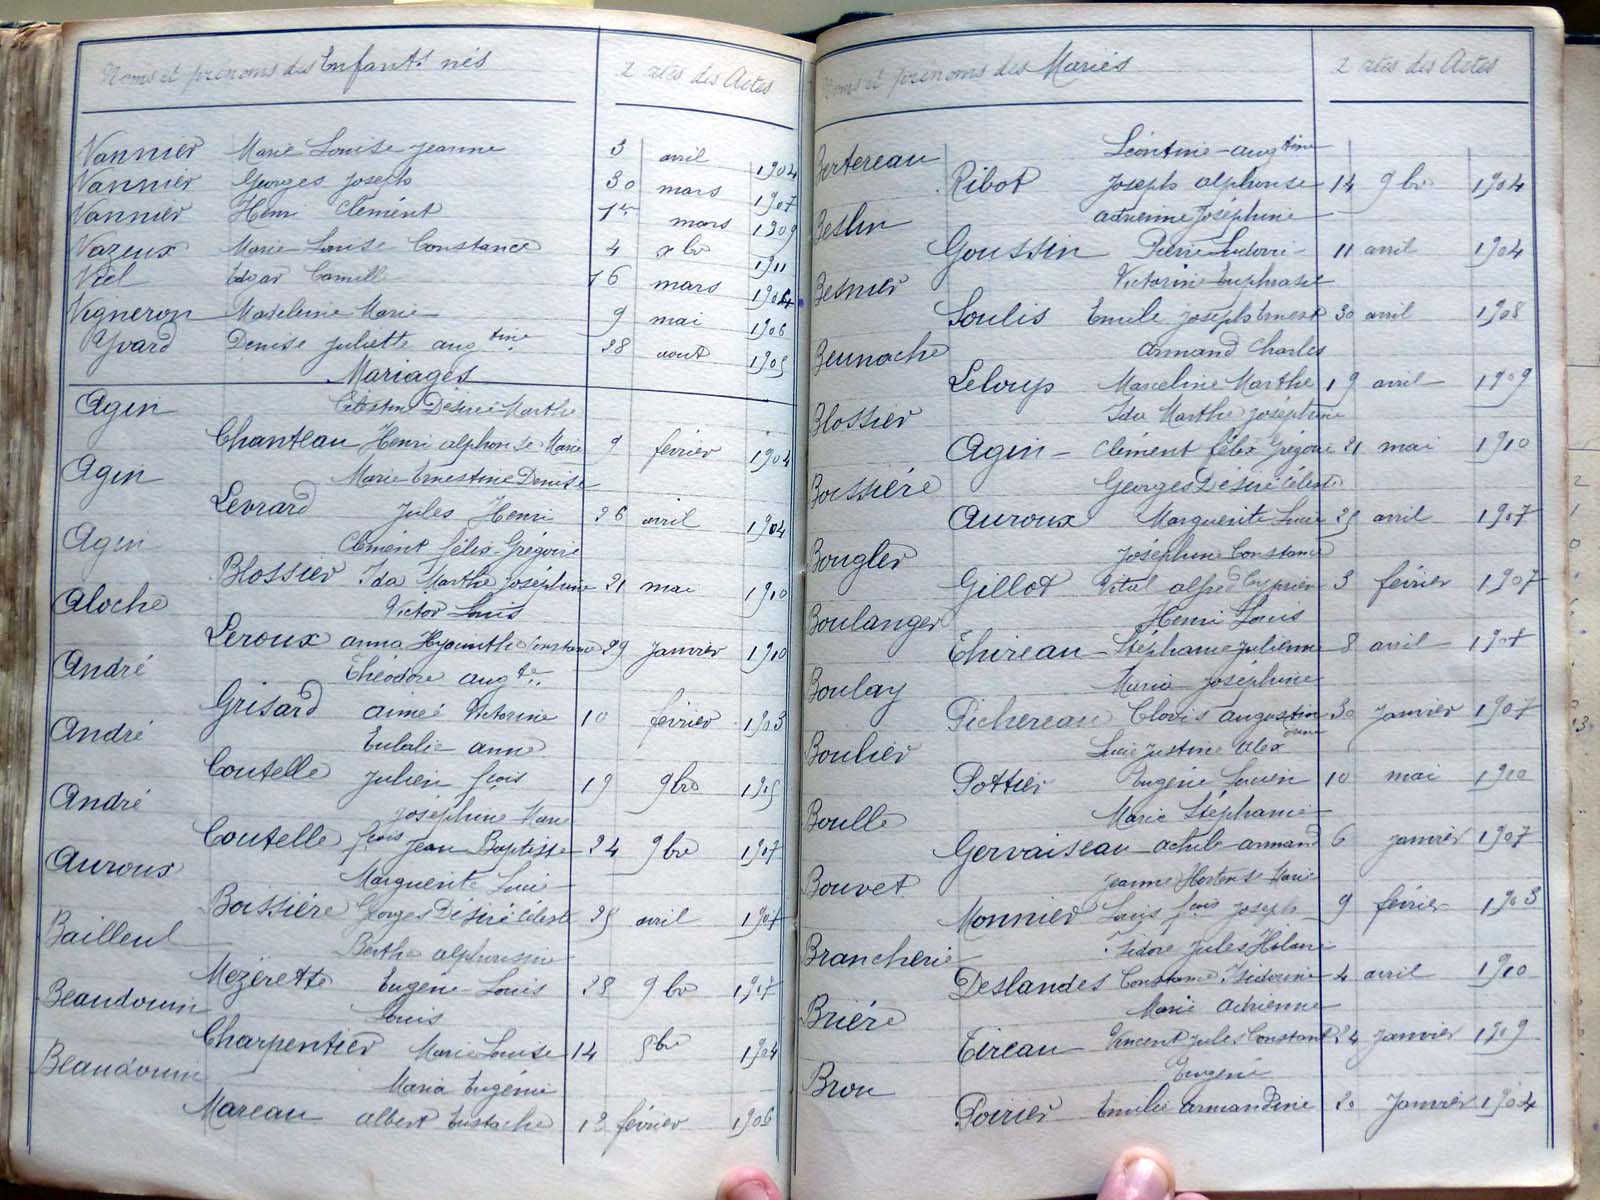 Noms et prénoms des Enfants nés Dates des Actes
Vannier Marie Louise Jeanne 3 avril 1904
Vannier Georges Joseph 30 mars 1907
Vannier Henri Clément 1er mars 1909
Vazeux Marie Louise Constance 4 xbre 1911
Viel Edgar Camille 16 mars 1904
Vigneron Madeleine Marie 9 mai 1906
Yvard Denise Juliette augtine 28 aout 1905
Mariages
Agin Célestine Désirée Marthe
Chanteau Henri alphonse Marie 9 février 1904
Agin Marie Ernestine Denise
Levrard Jules Henri 26 avril 1904
Agin Clément félix Grégoire
Blossier Ida Marthe Joséphine 21 mai 1910
Aloche Victor Louis
Leroux anna Hyacinthe Constance 29 Janvier 1910
André Théodore augte
Grisard aimée Victorine 10 février 1903
André Eulalie anne
Coutelle Julien fçois 19 9bre 1905
André Joséphine Marie
Coutelle fçois Jean Baptiste 24 9bre 1907
Auroux Marguerite Lucie
Boissière Georges Désiré Célest 25 avril 1907
Bailleul Berthe alphonsine
Mézerette Eugène Louis 28 9bre 1907
Beaudouin Louis
Charpentier Marie Louise 14 1904
Beaudouin Maria Eugénie
Mareau albert Eustache 12 février 1906
Noms et prénoms des Mariés Dates des Actes
Bertereau Léontine augtine
Ribot Joseph alphonse 14 9bre 1904
Beslin adrienne Joséphine
Goussin Pierre 11 avril 1904
Besnier Victorine Euphrasie
Soulis Emile Joseph Ernest 30 avril 1908
Beunache armand Charles
Leloup Marceline Marthe 19 avril 1909
Blossier Ida Marthe Joséphine
Agin Clément félix Grégoire 21 mai 1910
Boissière Georges Désiré Célest
Auroux Marguerite Lucie 25 avril 1907
Bougler Joséphine Constance
Gillot Vital alfred Cyprien 3 février 1907
Boulanger Henri Louis
Thireau Stéphanie Julienne 8 avril
Boulay Maria Joséphine
Pichereau Clovis augustin 30 Janvier 1907
Boulier Lucie Justine Alexdrine
Pottier Eugène Lucien 10 mai 1910
Boulle Marie Stéphanie
Gervaiseau achile armand 6 janvier 1907
Bouvet Jeanne Hortense Marie
Monnier Louis fçois Joseph 9 février 1903
Brancherie Isidore Jules Hilaire
Deslandes Constance Isidorine 4 avril 1910
Brière Marie adrienne
Tireau Vincent Jules Constant 24 Janvier 1909
Brou Eugène
Poirier Emilie armandine 20 Janvier 1904